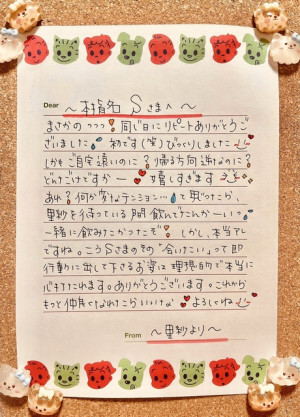 Dear
〜本指名 Sさまへ〜
まさかのっっっ❗同じ日にリピートありがとうご
ざいました💦 初です(笑)びっくりしました
しかもご自宅遠いのに❓帰る方向逆なのに❓
どんだけですかー ❤嬉しすぎます
あれ❓何か変なテンション…💧て思ってたら、
里紗を待っている間飲んでたんかーいっ
一緒に飲みたかったぞ❗しかし、本当アレ
ですね。こうSさまのその"会いたい"って即
行動に出して下さるお姿は理想的で本当に
心打たれます。ありがとうございます。これから
もっと仲良くなれたらいいな❤よろしくね
From
〜里紗より〜